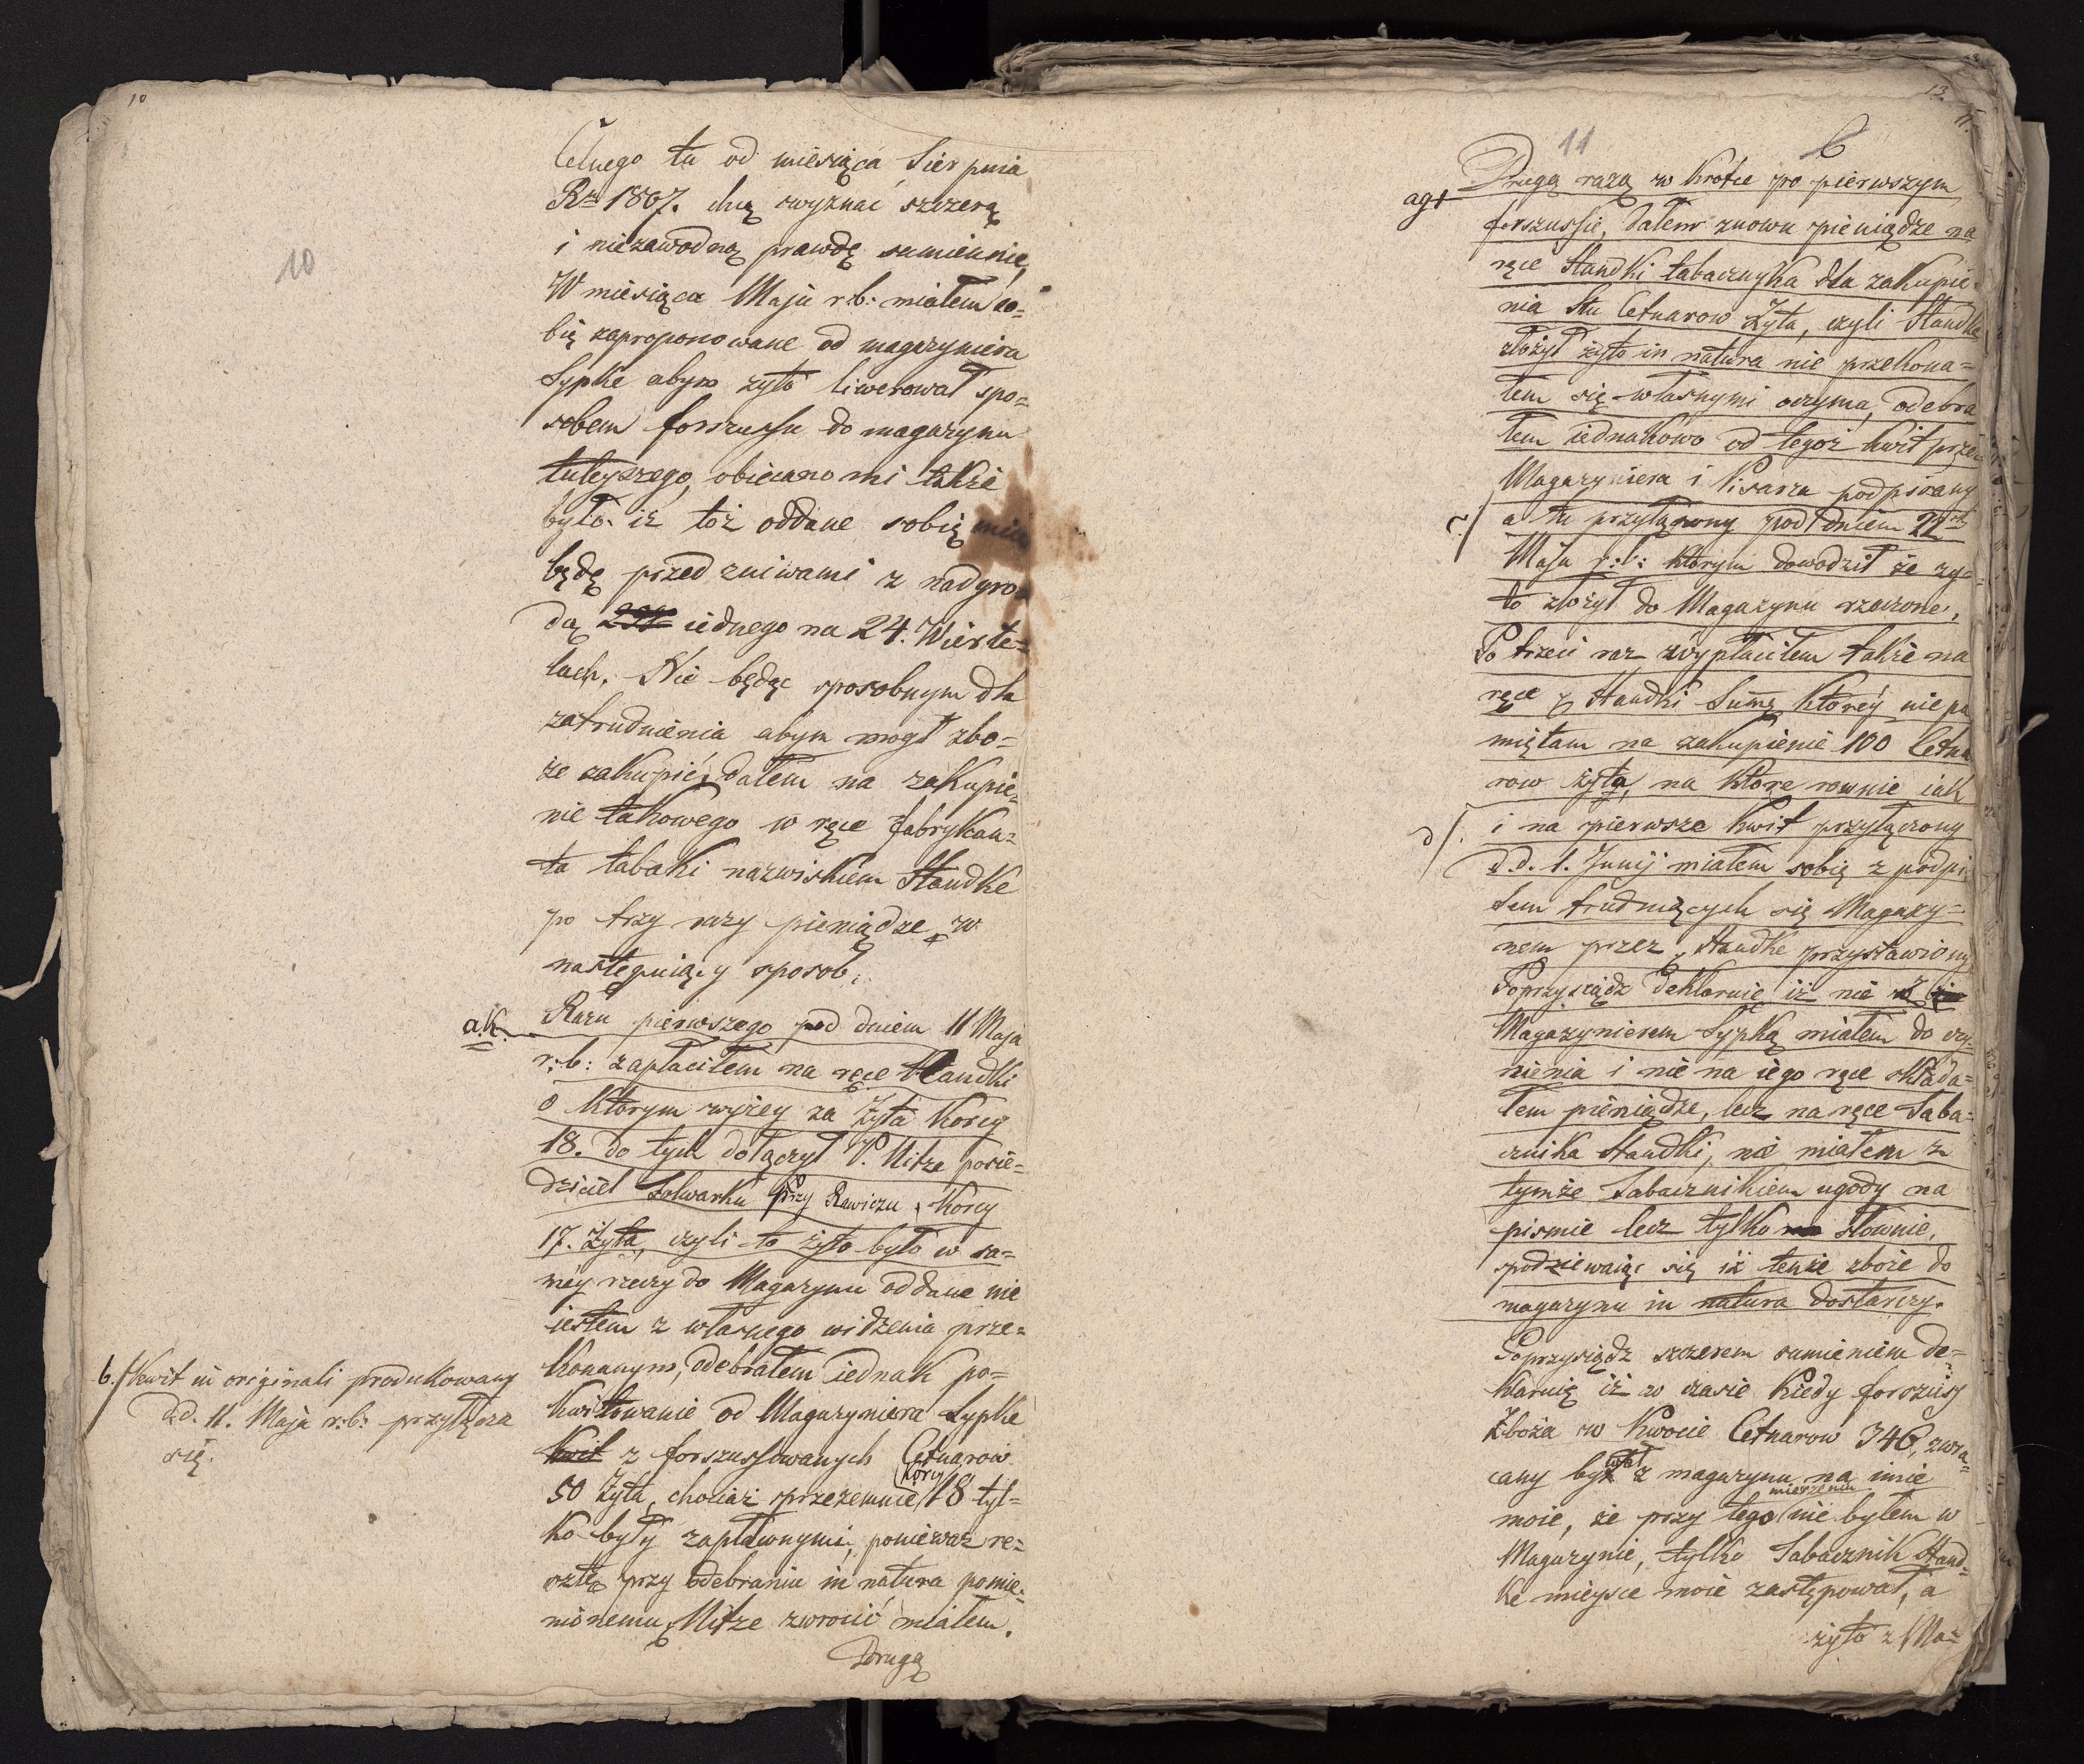 10
10
Celnego tu od miesiąca Sierpnia
Rn 1807. chcą wyznać szczerą
i niezawodną prawdę sumiennie,
W miesiącu Maju r: b: miałem so=
bię zaproponowane od magazyniera
Sypke abym zyto liwerował spo=
sobem forszussu do magazynu
tuteyszego, obiecano mi także
było iż toż oddane sobię mieć
będę przed zniwami z nadgro
dą iednego na 24. Wierte=
lach. Nie będąc sposobnym dla
zatrudnienia abym mogł zbo=
że zakupić, dałem na zakupie=
nie takowego w ręce fabrykan=
ta tabaki nazwiskiem Standke
po trzy razy pieniądze w
następuiący sposob,
a.K. Razu pierwszego pod dniem 11 Maja
r: b: zapłaciłem na ręce Standki
o ktorym wyżey za Żyta Korcy
18. do tych dołączył P. Nitze posie=
dziciel Folwarku przy Rawiczu, Korcy
17. Żyta, czyli to żyto było w sa=
mey rzeczy do Magazynu oddane nie
iestem z własnego widzenia prze=
konanym, odebrałem iednak po=
kwitowanie od Magazyniera Sypke
kwit z forszussowanych Cetnarow
50 Żyta, chociaż przezemnie Korcy 18 tyl=
ko były zapłaconymi, ponieważ re=
sztę przy odebraniu in natura pomie=
nionemu Nitze zwrocić miałem.
Drugą
b./ Kwit in originali produkowany
d. d. 11. Maja r: b: przyłącza
się.
13.
11.
11
ag+ Drugą razą w krotce po pierwszym
forszussie, dałem znowu pieniądze na
ręce Standki tabacznyka dla zakupie=
nia Stu Cetnarow Żyta, czyli Standke
złożył żyto in natura nie przekona=
łem się własnymi oczyma, odebra
łem iednakowo od tegoż kwit przez
Magazyniera i Pisarza podpisany
c/ a tu przyłączony pod dniem 22
Maja r: b: ktorym dowodził że zy=
to złożył do Magazynu rzeczone,
Po trzeci raz wypłaciłem także na
ręce Standki Sumę ktorey nie pa
miętam na zakupienie 100 Cetna
row żyta, na ktore rownie iak
d/. i na pierwsze kwit przyłączony
d. d. 1. Junij miałem sobię z podpi
sem trudniących się Magazy=
nem przez Standke przystawiony
Poprzysiądz deklaruię iż nie z
Magazynierem Sypką miałem do czy=
nienia i nie na iego ręce składa=
łem pieniądze, lecz na ręce Taba=
cznika Standki, nie miałem z
tymże Tabacznikiem ugody na
pismie lecz tylko słownie,
spodziewaiąc się iż tenże zboże do
magazynu in natura dostarczy.
Poprzysiądz szczerem sumieniem de=
klaruię iż w czasie kiedy forszuss
Zboża w kwocie Cetnarow 346, zwra=
cany był z magazynu na imie
moie, że przy tego mierzeniu nie byłem w
Magazynie, tylko Tabacznik Stand=
ke mieysce moie zastępował, a
żyto z Ma=